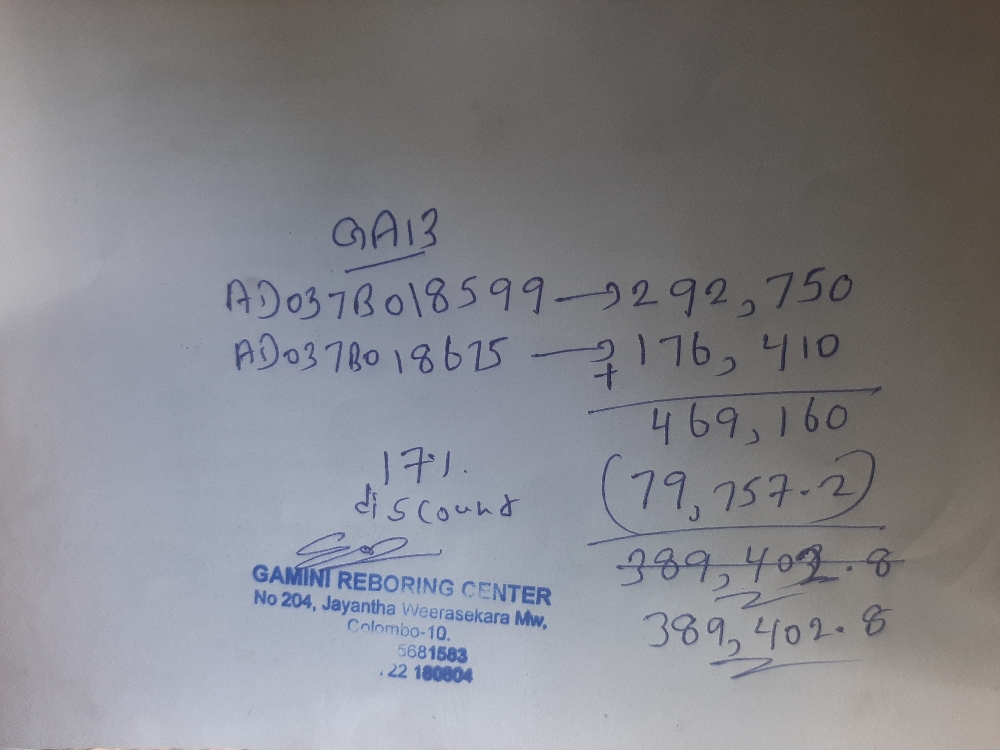 GA13
AD037B018599 → 292,750
AD037B018675 → 176,410
+
469,160
17%
discount
(79,757.2)
389,402.8
389,402.8
GAMINI REBORING CENTER
No 204, Jayantha Weerasekara Mw,
Colombo-10.
5681583